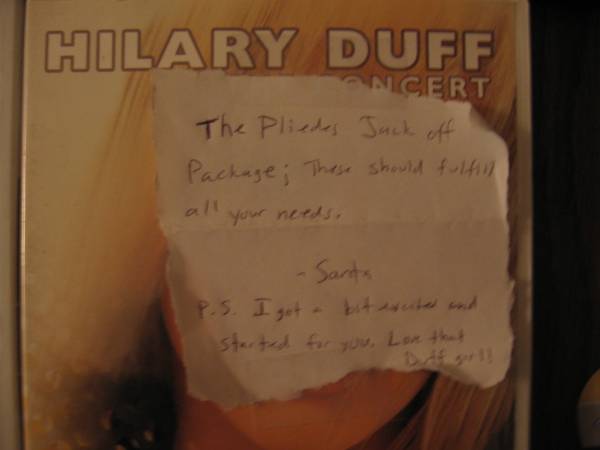 HILARY DUFF
CONCERT
The Pliedes Jack off
Package; These should fulfill
all your needs.
- Santa
P.S. I got a bit excited and
started for you. Love that
Duff girl!